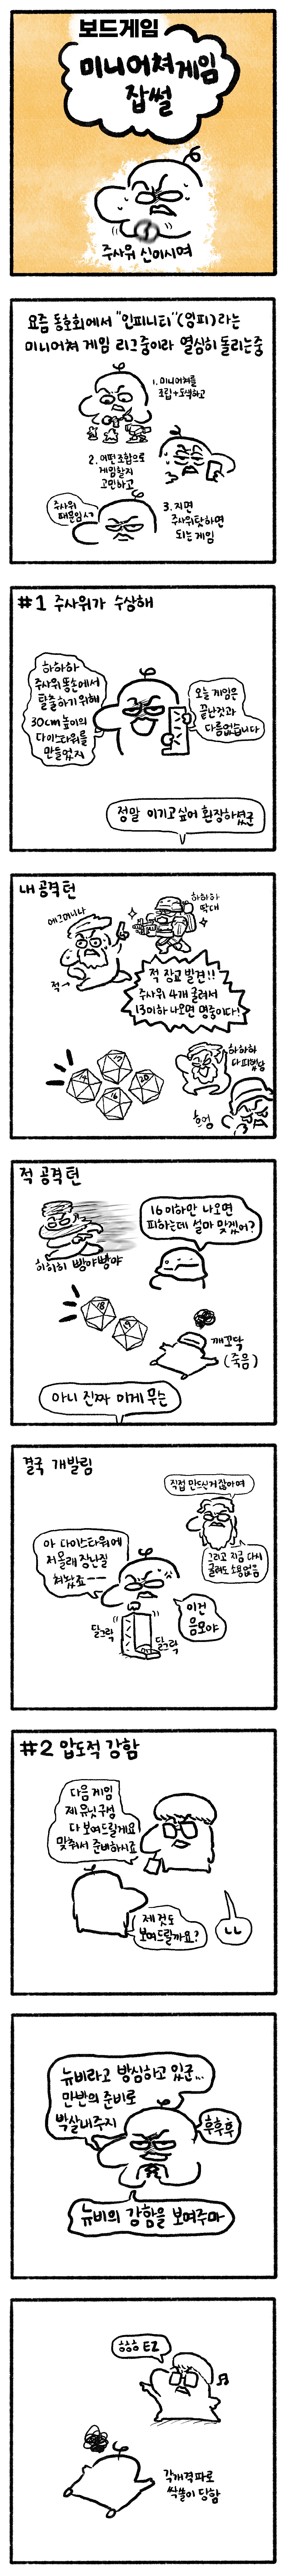 보드게임
미니어쳐게임
잡썰
주사위 신이시여
요즘 동호회에서 "인피니티"(잉피)라는
미니어쳐 게임 리그중이라 열심히 돌리는중
1. 미니어쳐를
조립+도색하고
2. 어떤조합으로
게임할지
고민하고
주사위
때문임ㅅㄱ
3. 지면
주사위탓하면
되는게임
#1 주사위가 수상해
하하하
주사위 똥손에서
탈출하기위해
30cm높이의
다이스타워를
만들었지
오늘 게임은
끝난것과
다름없습니다
정말 이기고싶어 환장하셨군
내 공격턴
에그머니나
적→
하하하
딱대
적 장교 발견!!
주사위 4개 굴려서
13이하 나오면 명중이다!
17
20
16
하하하
다피했낭
흐엄
적 공격턴
히히히 빵야빵야
16이하만 나오면
피하는데 설마 맞겠어?
18
19
깨꼬닥
(죽음)
아니 진짜 이게 무슨
결국 개발림
직접 만드신거잖아여
그리고 지금 다시
굴려도 소용없음
아 다이스타워에
저몰래 장난질
쳐놨죠ㅡㅡ
이건
음모야
달그락
달그락
#2 압도적 강함
다음 게임
제 유닛구성
다 보여드릴게요
맞춰서 준비하시죠
제것도
보여드릴까요?
ㄴㄴ
뉴비라고 방심하고 있군...
만반의 준비로
박살내주지
후후후
뉴비의 강함을 보여주마
ㅎㅎㅎ EZ
각개격파로
싹쓸이 당함